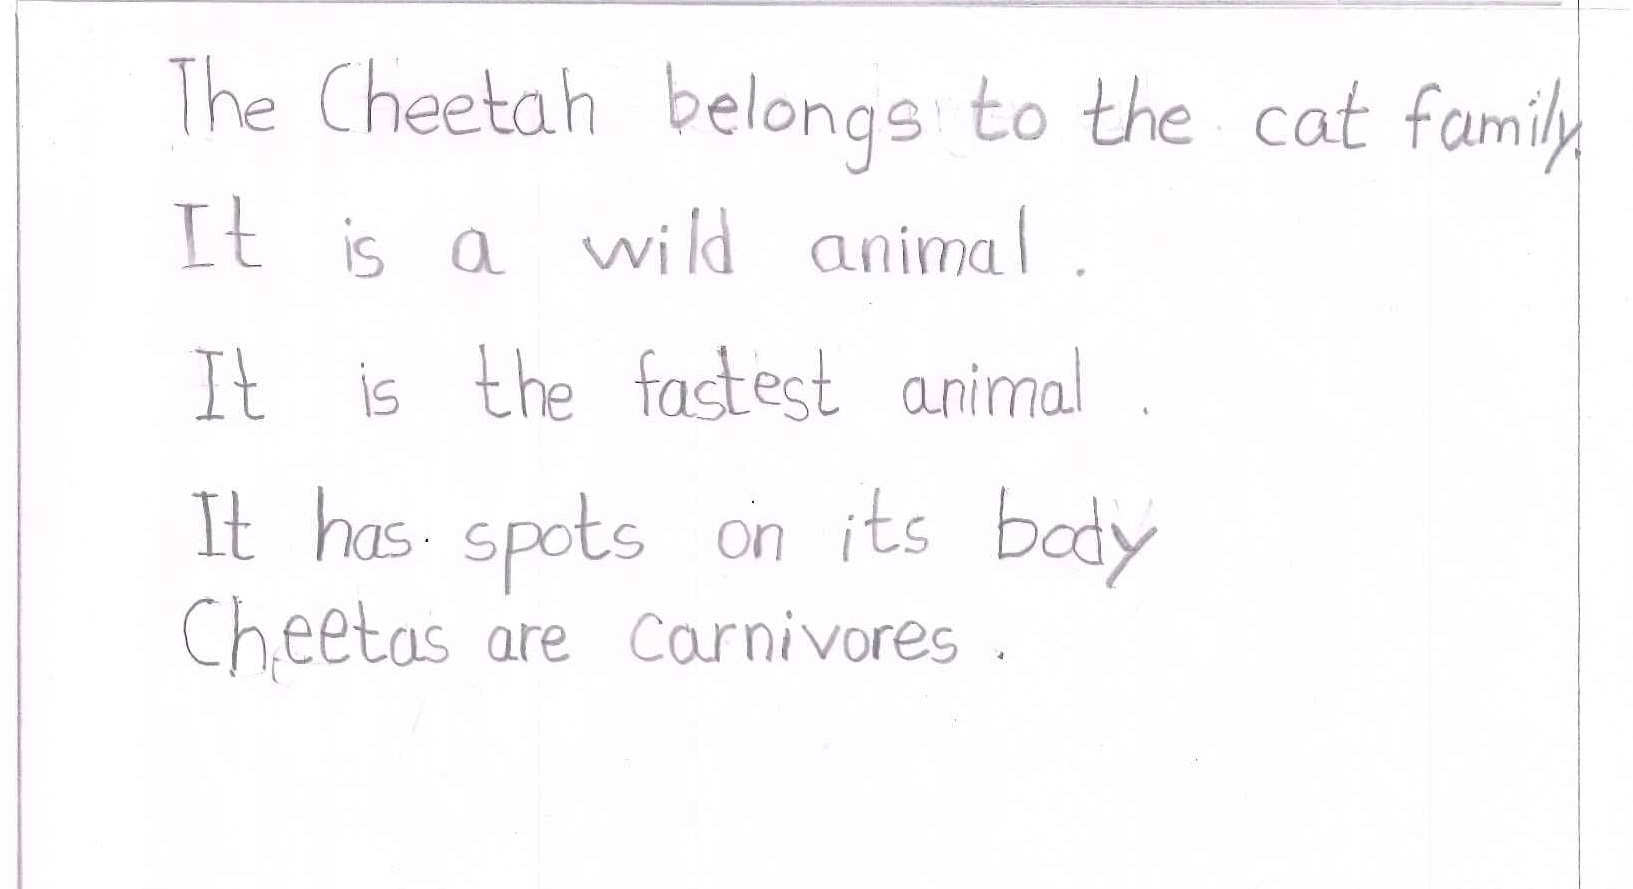 The Cheetah belongs to the cat family.
It is a wild animal.
It is the fastest animal.
It has spots on its body
Cheetas are carnivores.